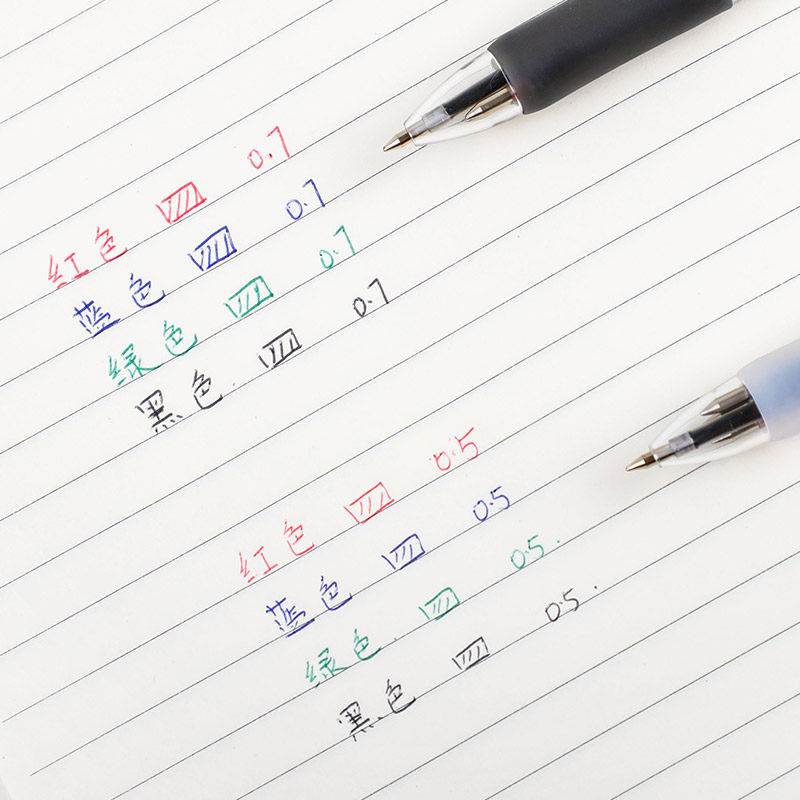 红色 0.7
蓝色 0.7
绿色 0.7
黑色 0.7
红色 0.5
蓝色 0.5
绿色 0.5.
黑色 0.5.